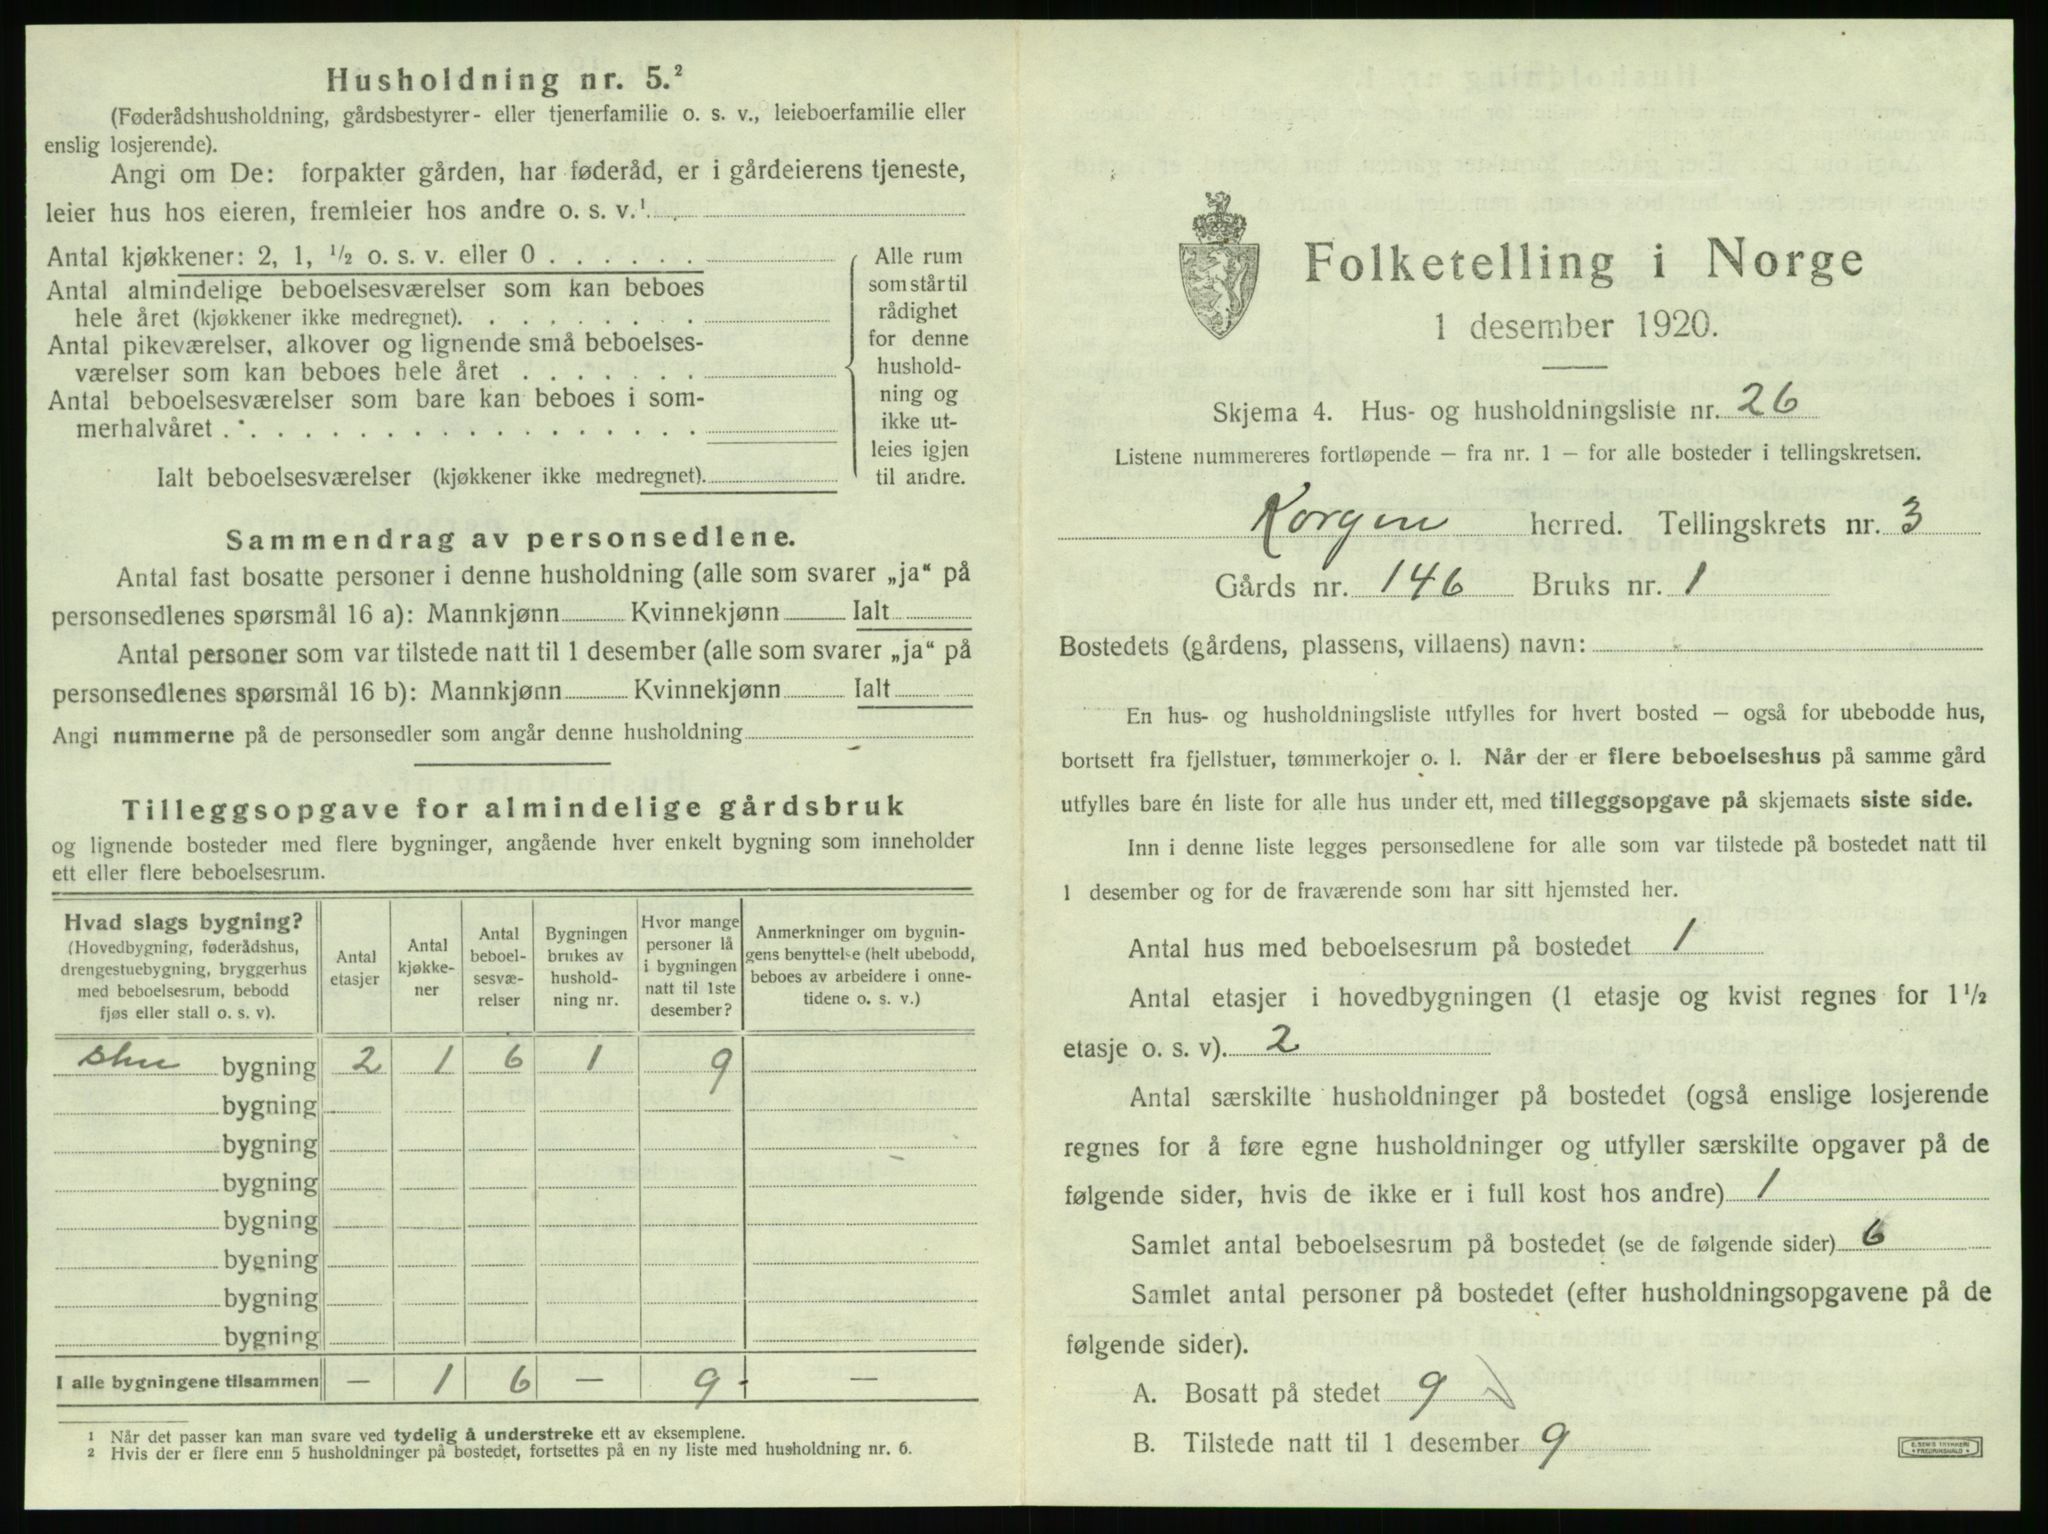 Husholdning nr. 5.²
(Føderådshusholdning, gårdsbestyrer- eller tjenerfamilie o. s. v., leieboerfamilie eller
enslig losjerende).
Angi om De: forpakter gården, har føderåd, er i gårdeierens tjeneste,
leier hus hos eieren, fremleier hos andre o. s. v.¹
Antal kjøkkener: 2, 1, ½ o. s. v. eller 0 . . . . . .
Antal almindelige beboelsesværelser som kan beboes
hele året (kjøkkener ikke medregnet). . . . . . . .
Antal pikeværelser, alkover og lignende små beboelses-
værelser som kan beboes hele året . . . . . . .
Antal beboelsesværelser som bare kan beboes i som-
merhalvåret . . . . . . . . . . . . . . . . . .
Ialt beboelsesværelser (kjøkkener ikke medregnet).
Alle rum
som står til
rådighet
for denne
hushold-
ning og
ikke ut-
leies igjen
til andre.
Sammendrag av personsedlene.
Antal fast bosatte personer i denne husholdning (alle som svarer „ja“ på
personsedlenes spørsmål 16 a): Mannkjønn Kvinnekjønn Ialt
Antal personer som var tilstede natt til 1 desember (alle som svarer „ja“ på
personsedlenes spørsmål 16 b): Mannkjønn Kvinnekjønn Ialt
Angi nummerne på de personsedler som angår denne husholdning
Tilleggsopgave for almindelige gårdsbruk
og lignende bosteder med flere bygninger, angående hver enkelt bygning som inneholder
ett eller flere beboelsesrum.
Hvad slags bygning?
(Hovedbygning, føderådshus,
drengestuebygning, bryggerhus
med beboelsesrum, bebodd
fjøs eller stall o. s. v).
Antal
etasjer
Antal
kjøkke-
ner
Antal
beboel-
sesvæ-
relser
Bygningen
brukes av
hushold-
ning nr.
Hvor mange
personer lå
i bygningen
natt til 1ste
desember?
Anmerkninger om bygnin-
gens benyttelse (helt ubebodd,
beboes av arbeidere i onne-
tidene o. s. v.)
stu bygning 2 1 6 1 9
bygning
bygning
bygning
bygning
bygning
bygning
bygning
I alle bygningene tilsammen — 1 6 — 9 —
¹ Når det passer kan man svare ved tydelig å understreke ett av eksemplene.
² Hvis der er flere enn 5 husholdninger på bostedet, fortsettes på en ny liste med husholdning nr. 6.
Folketelling i Norge
1 desember 1920.
Skjema 4. Hus- og husholdningsliste nr. 26
Listene nummereres fortløpende — fra nr. 1 — for alle bosteder i tellingskretsen.
Korgen herred. Tellingskrets nr. 3
Gårds nr. 146 Bruks nr. 1
Bostedets (gårdens, plassens, villaens) navn:
En hus- og husholdningsliste utfylles for hvert bosted — også for ubebodde hus,
bortsett fra fjellstuer, tømmerkojer o. l. Når der er flere beboelseshus på samme gård
utfylles bare én liste for alle hus under ett, med tilleggsopgave på skjemaets siste side.
Inn i denne liste legges personsedlene for alle som var tilstede på bostedet natt til
1 desember og for de fraværende som har sitt hjemsted her.
Antal hus med beboelsesrum på bostedet 1
Antal etasjer i hovedbygningen (1 etasje og kvist regnes for 1½
etasje o. s. v). 2
Antal særskilte husholdninger på bostedet (også enslige losjerende
regnes for å føre egne husholdninger og utfyller særskilte opgaver på de
følgende sider, hvis de ikke er i full kost hos andre) 1
Samlet antal beboelsesrum på bostedet (se de følgende sider) 6
Samlet antal personer på bostedet (efter husholdningsopgavene på de
følgende sider).
A. Bosatt på stedet 9
B. Tilstede natt til 1 desember 9